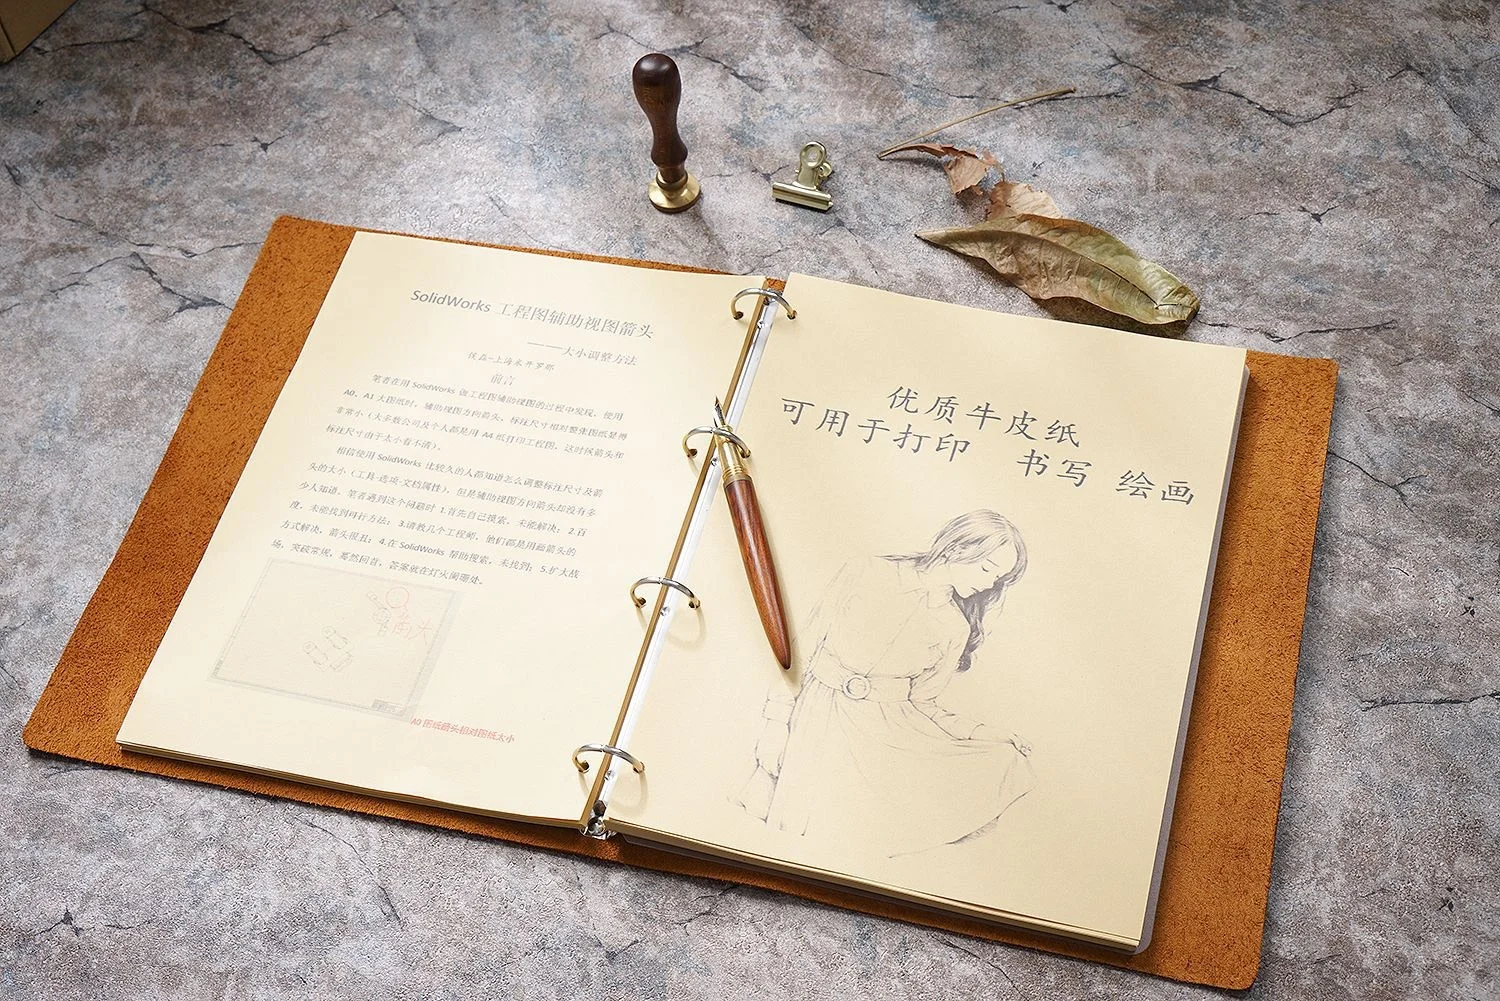 SolidWorks 工程图辅助视图箭头
——大小调整方法
优磊-上海米开罗那
前言
笔者在用 SolidWorks 做工程图辅助视图的过程中发现，使用
A0、A1 大图纸时，辅助视图方向箭头、标注尺寸相对整张图纸显得
非常小（大多数公司及个人都是用 A4 纸打印工程图，这时候箭头和
标注尺寸由于太小看不清）。
相信使用 SolidWorks 比较久的人都知道怎么调整标注尺寸及箭
头的大小（工具-选项-文档属性），但是辅助视图方向箭头却没有多
少人知道。笔者遇到这个问题时 1.首先自己摸索，未能解决； 2.百
度，未能找到可行方法； 3.请教几个工程师，他们都是用画箭头的
方式解决，箭头很丑； 4.在 SolidWorks 帮助搜索，未找到； 5.扩大战
场，突破常规，蓦然回首，答案就在灯火阑珊处。
箭头
A0 图纸箭头相对图纸太小
优质牛皮纸
可用于打印 书写 绘画